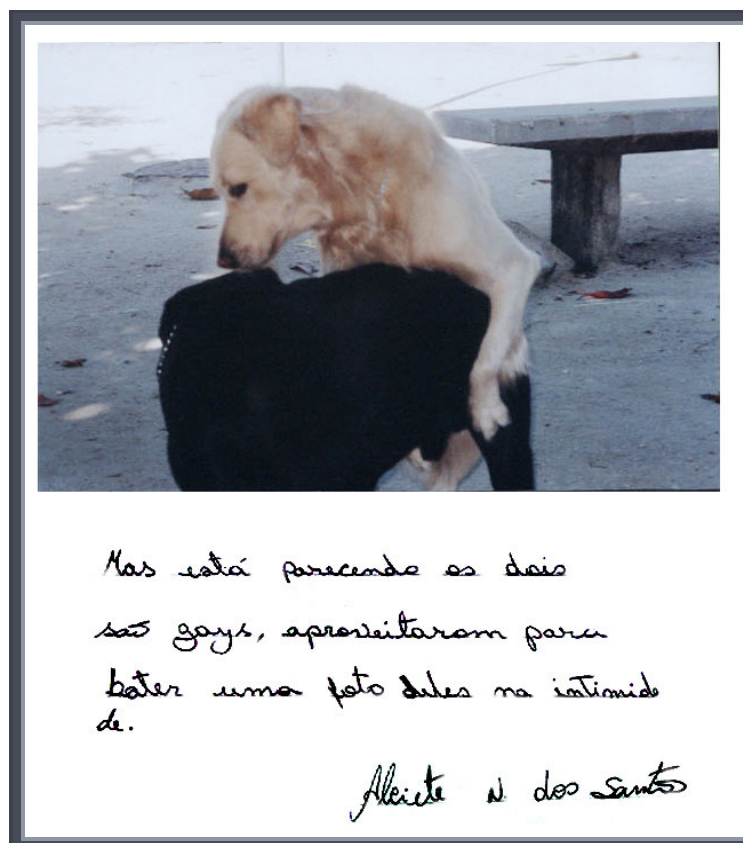 Mas está parecendo os dois
são gays, aproveitaram para
bater uma foto deles na intimida
de.
Alciete N dos Santos